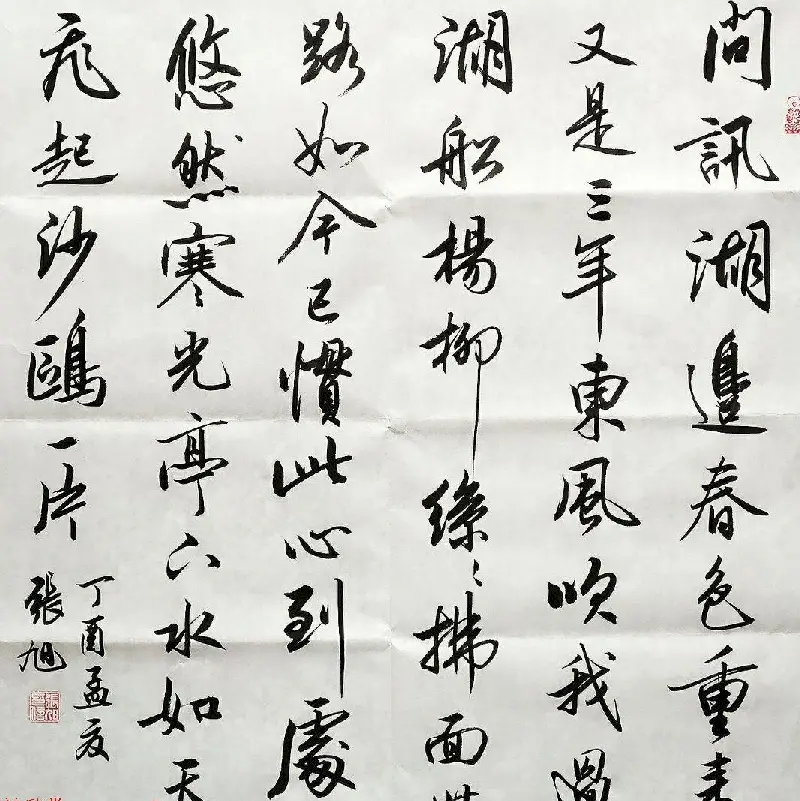 問訊湖邊春色重來
又是三年東風吹我過
湖船楊柳絲〻拂面世
路如今已慣此心到處
悠然寒光亭下水如天
飛起沙鷗一片
丁酉孟夏
張旭